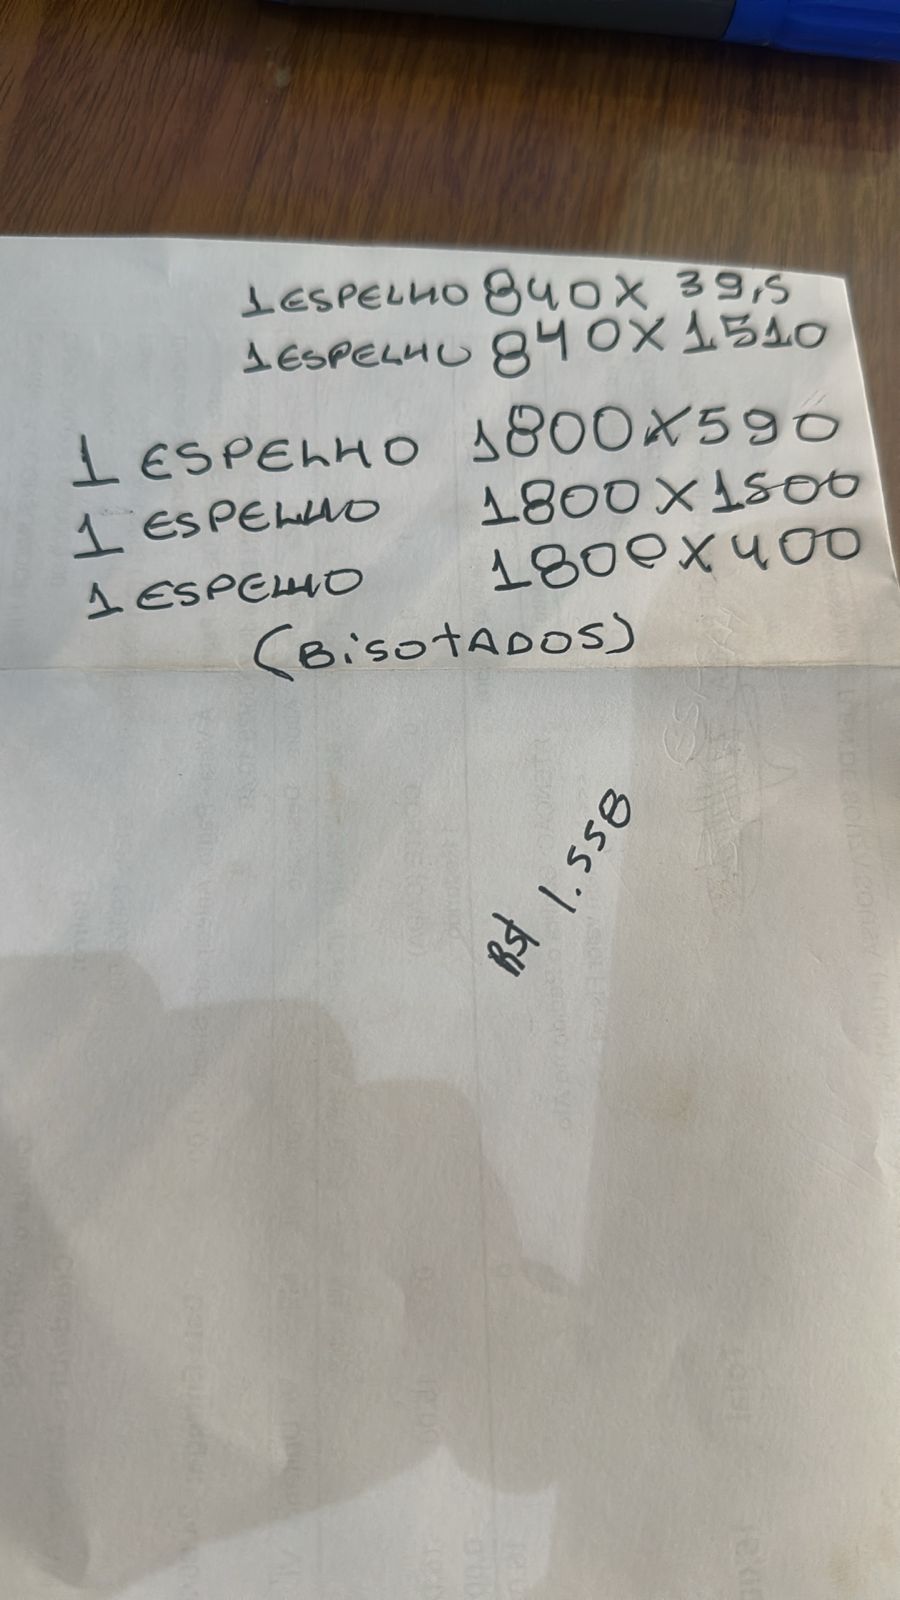 1 ESPELHO 840 X 39,5
1 ESPELHO 840 X 1510
1 ESPELHO 1800 X 590
1 ESPELHO 1800 X 1500
1 ESPELHO 1800 X 400
(BISOTADOS)
R$ 1.558